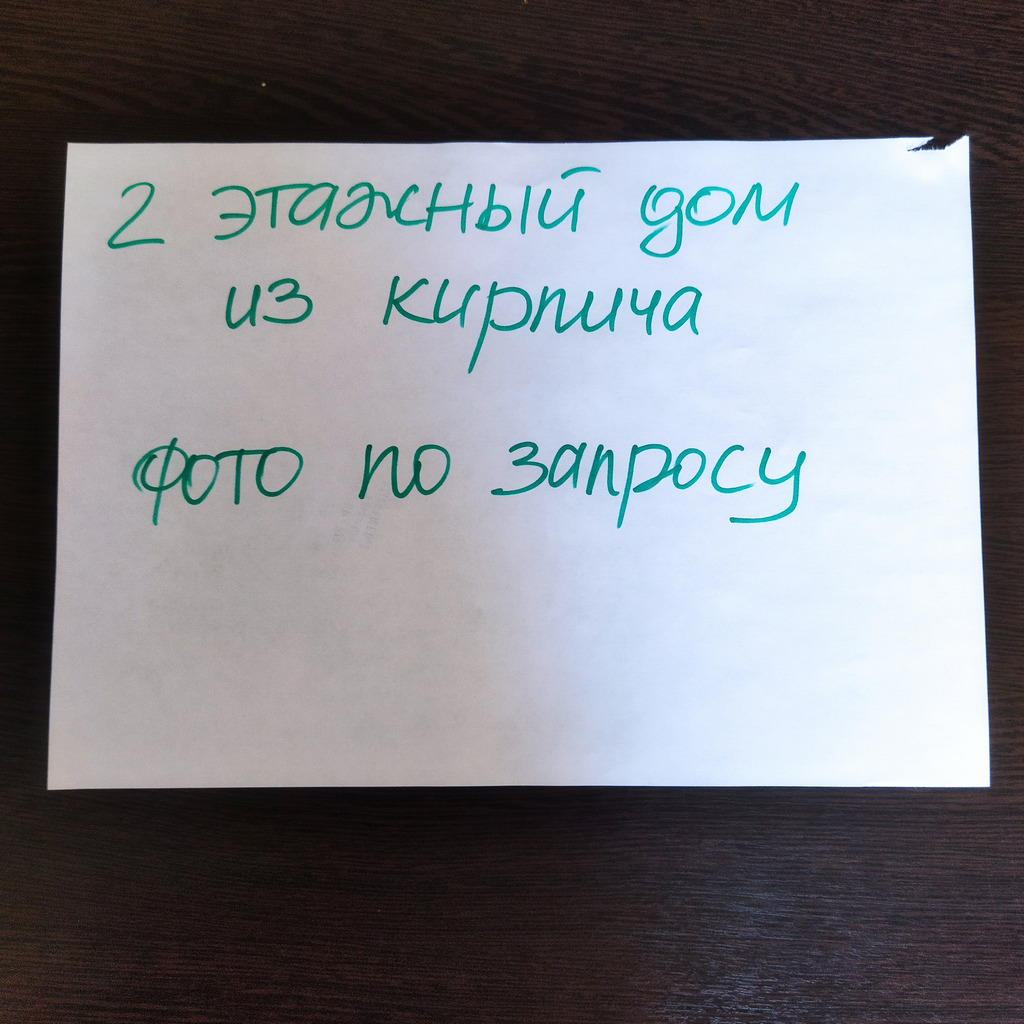 2 этажный дом
из кирпича
фото по запросу